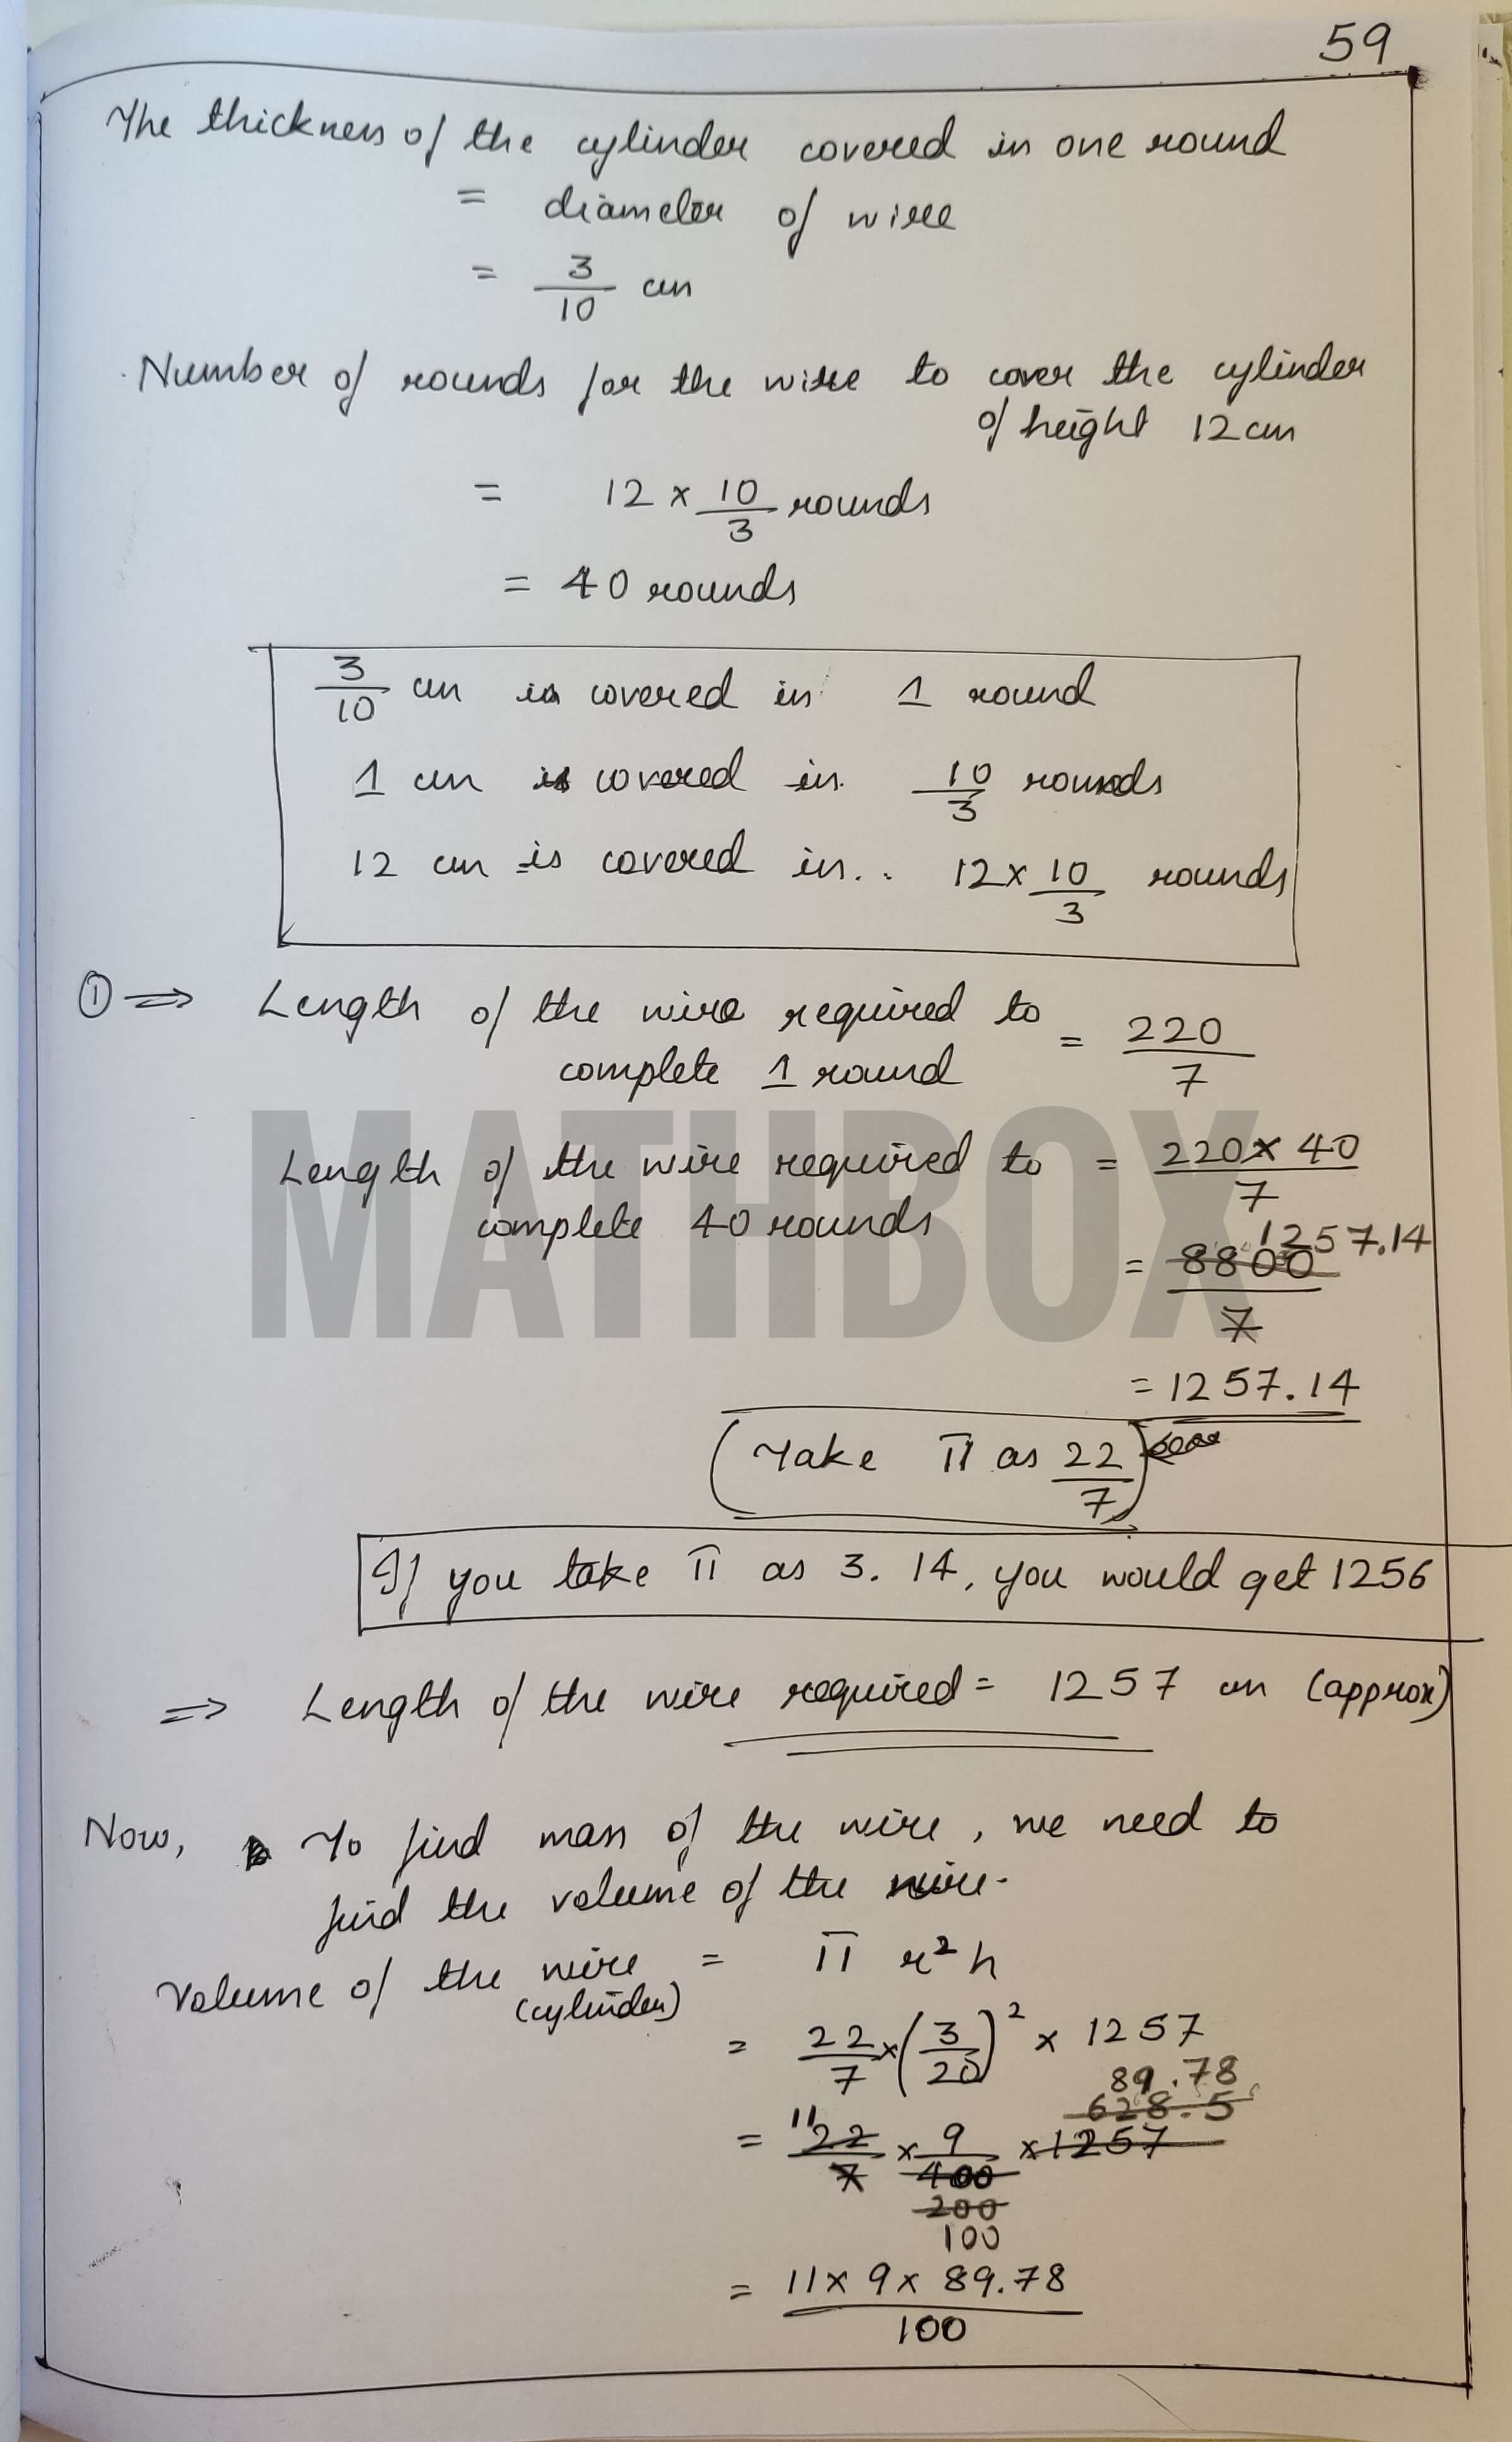 59
The thickness of the cylinder covered in one round
= diameter of wire
= 3/10 cm
Number of rounds for the wire to cover the cylinder
of height 12cm
= 12 × 10/3 rounds
= 40 rounds
3/10 cm is covered in 1 round
1 cm is covered in 10/3 rounds
12 cm is covered in.. 12 × 10/3 rounds
① ⇒ Length of the wire required to
complete 1 round = 220/7
Length of the wire required to = 220 × 40/7
complete 40 rounds
1257.14
= 8800/7
= 1257.14
(Take π as 22/7)
If you take π as 3.14, you would get 1256
⇒ Length of the wire required = 1257 cm (approx)
Now, To find mass of the wire, we need to
find the volume of the wire.
Volume of the wire = π r² h
(cylinder)
= 22/7 × (3/20)² × 1257
89.78
628.5
= 11 22/7 × 9/400 × 1257
200
100
= 11 × 9 × 89.78/100
MATHBOX